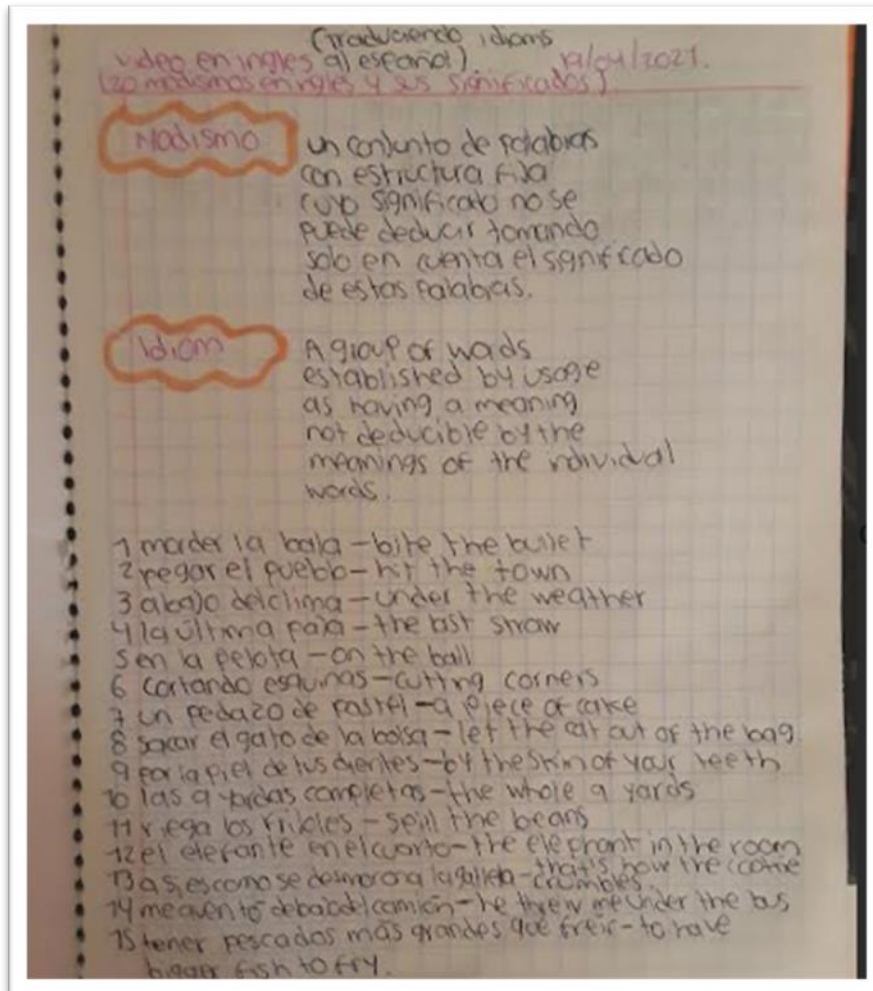 (Traduciendo idioms
video en ingles al español). 19/04/2021.
(20 modismos en ingles y sus significados)
Modismo
un conjunto de palabras
con estructura fija
cuyo significado no se
puede deducir tomando
solo en cuenta el significado
de estas palabras.
Idiom
A group of words
established by usage
as having a meaning
not deducible by the
meanings of the individual
words.
1 morder la bala - bite the bullet
2 pegar el pueblo - hit the town
3 abajo del clima - under the weather
4 la última paja - the last straw
5 en la pelota - on the ball
6 cortando esquinas - cutting corners
7 un pedazo de pastel - a piece of cake
8 sacar el gato de la bolsa - let the cat out of the bag
9 por la piel de tus dientes - by the skin of your teeth
10 las 9 yardas completas - the whole 9 yards
11 riega los frijoles - spill the beans
12 el elefante en el cuarto - the elephant in the room
13 asi es como se desmorona la galleta - that's how the cookie
crumbles.
14 me aventó debajo del camión - he threw me under the bus
15 tener pescados más grandes que freír - to have
bigger fish to fry.